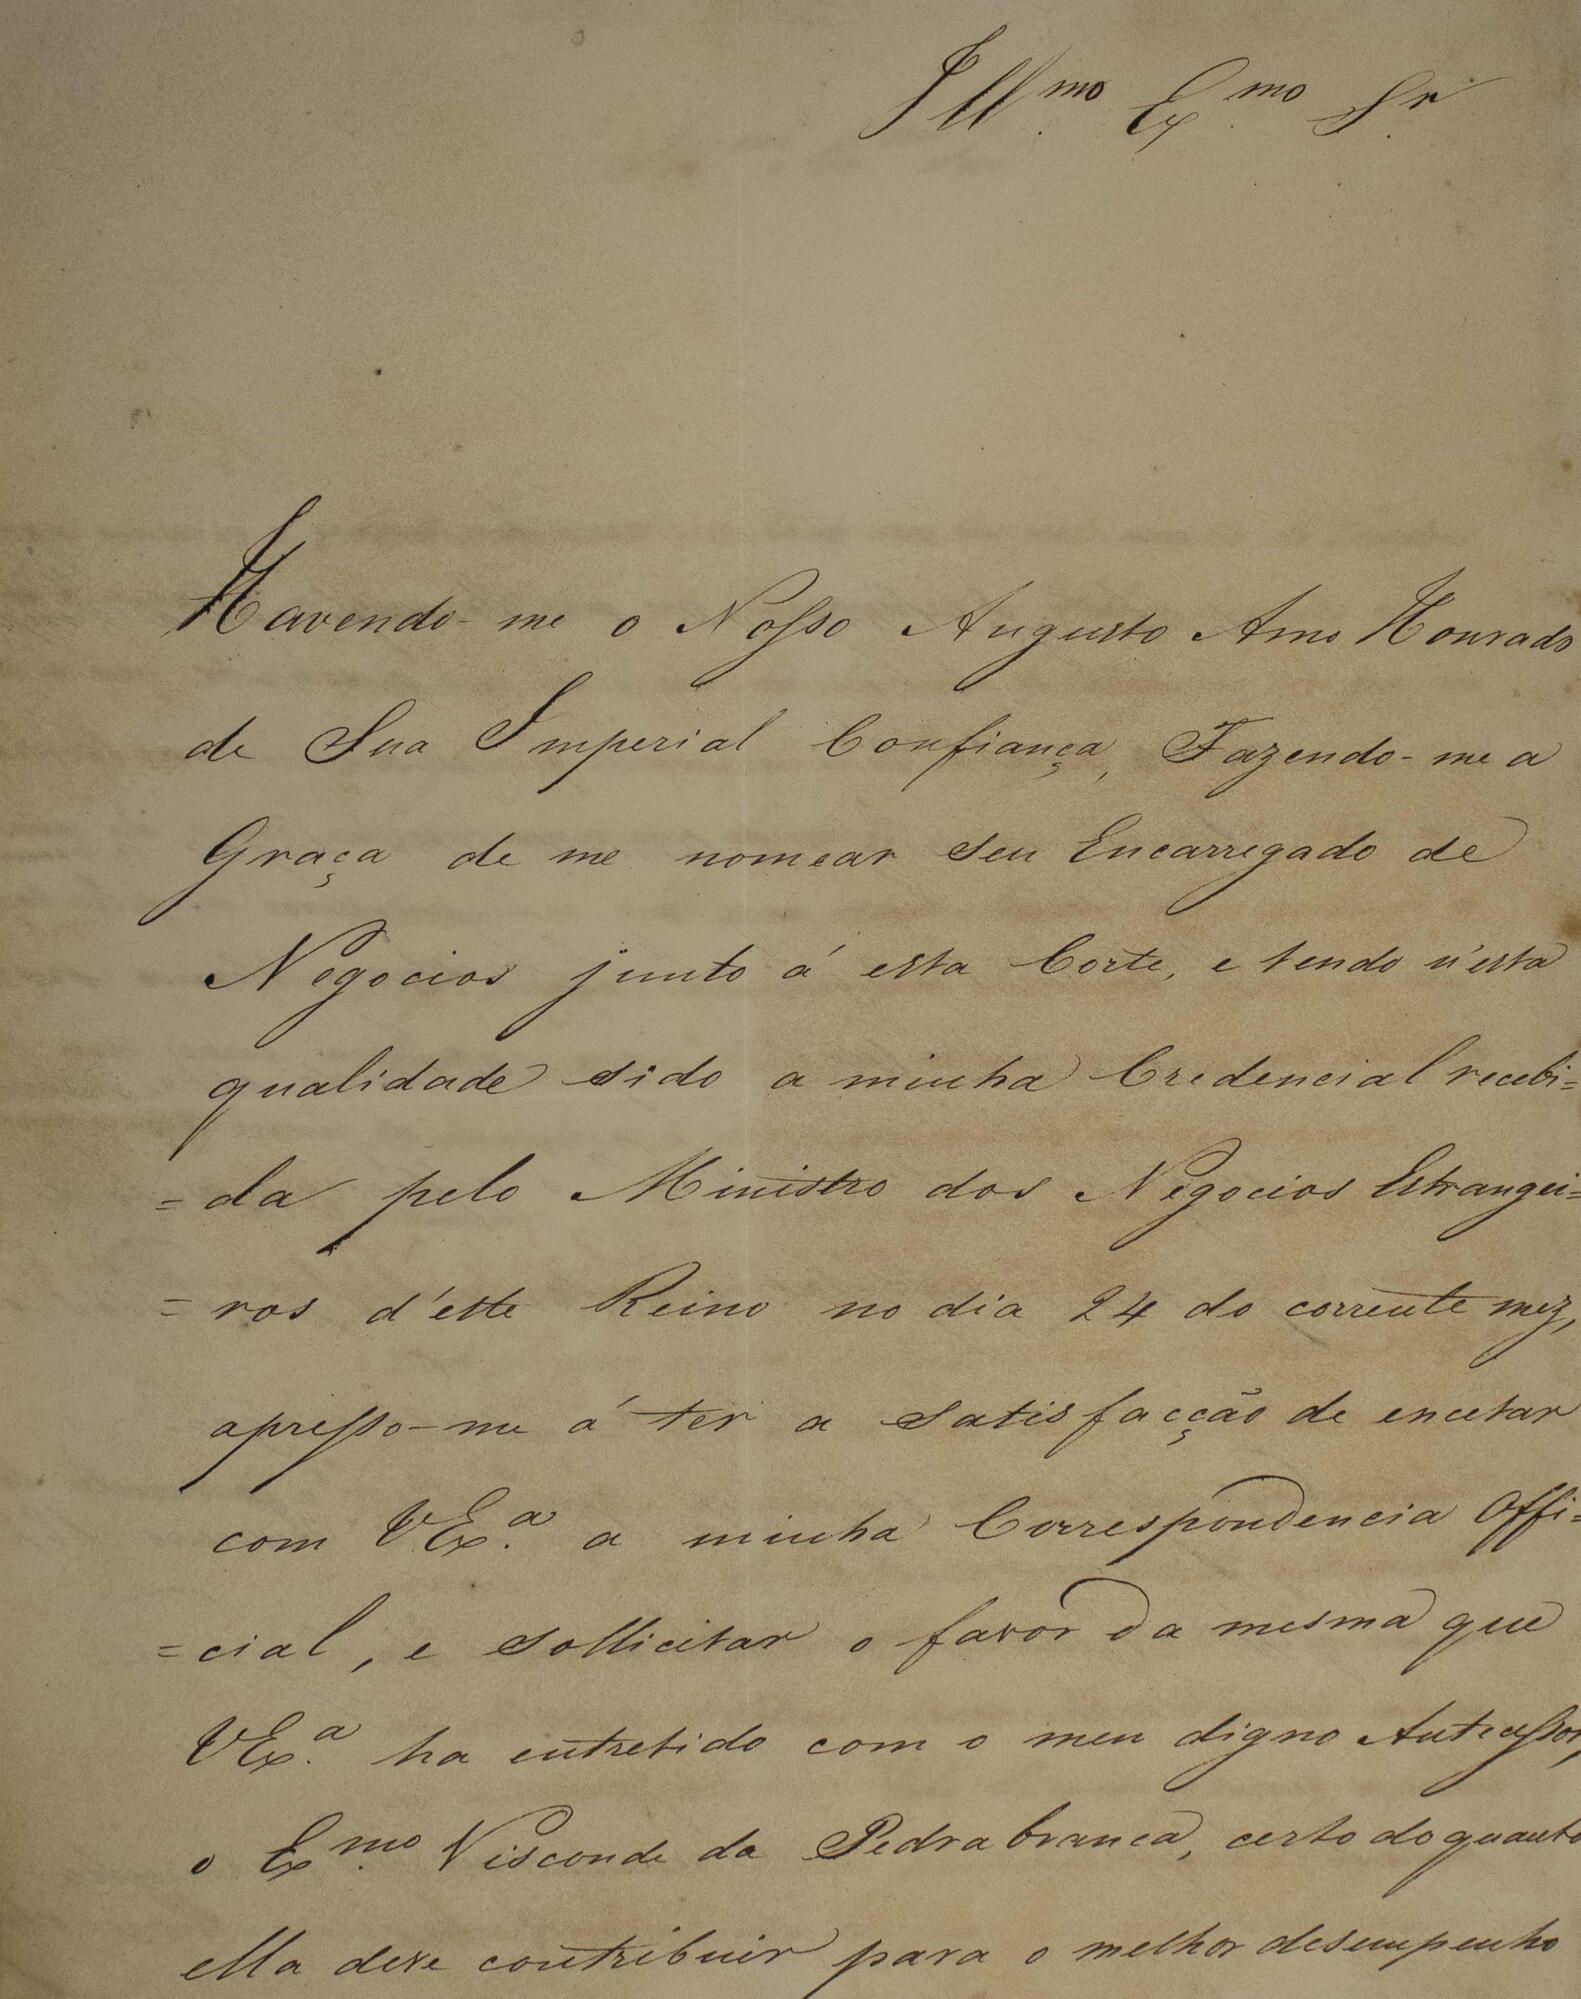 Ill.mo Ex.mo Sr.
Havendo-me o Nosso Augusto Amo Honrado
de Sua Imperial Confiança, Fazendo-me a
Graça de me nomear seu Encarregado de
Negocios junto á esta Corte, e tendo n'esta
qualidade sido a minha Credencial recebi=
=da pelo Ministro dos Negocios Estrangei=
=ros d'este Reino no dia 24 do corrente mez,
apresso-me á ter a satisfacção de encetar
com VEx.a a minha Correspondencia Offi=
=cial, e sollicitar o favor da mesma que
VEx.a ha entretido com o meu digno Antecessor,
o Ex.mo Visconde da Pedra branca, certo do quanto
ella deve contribuir para o melhor desempenho